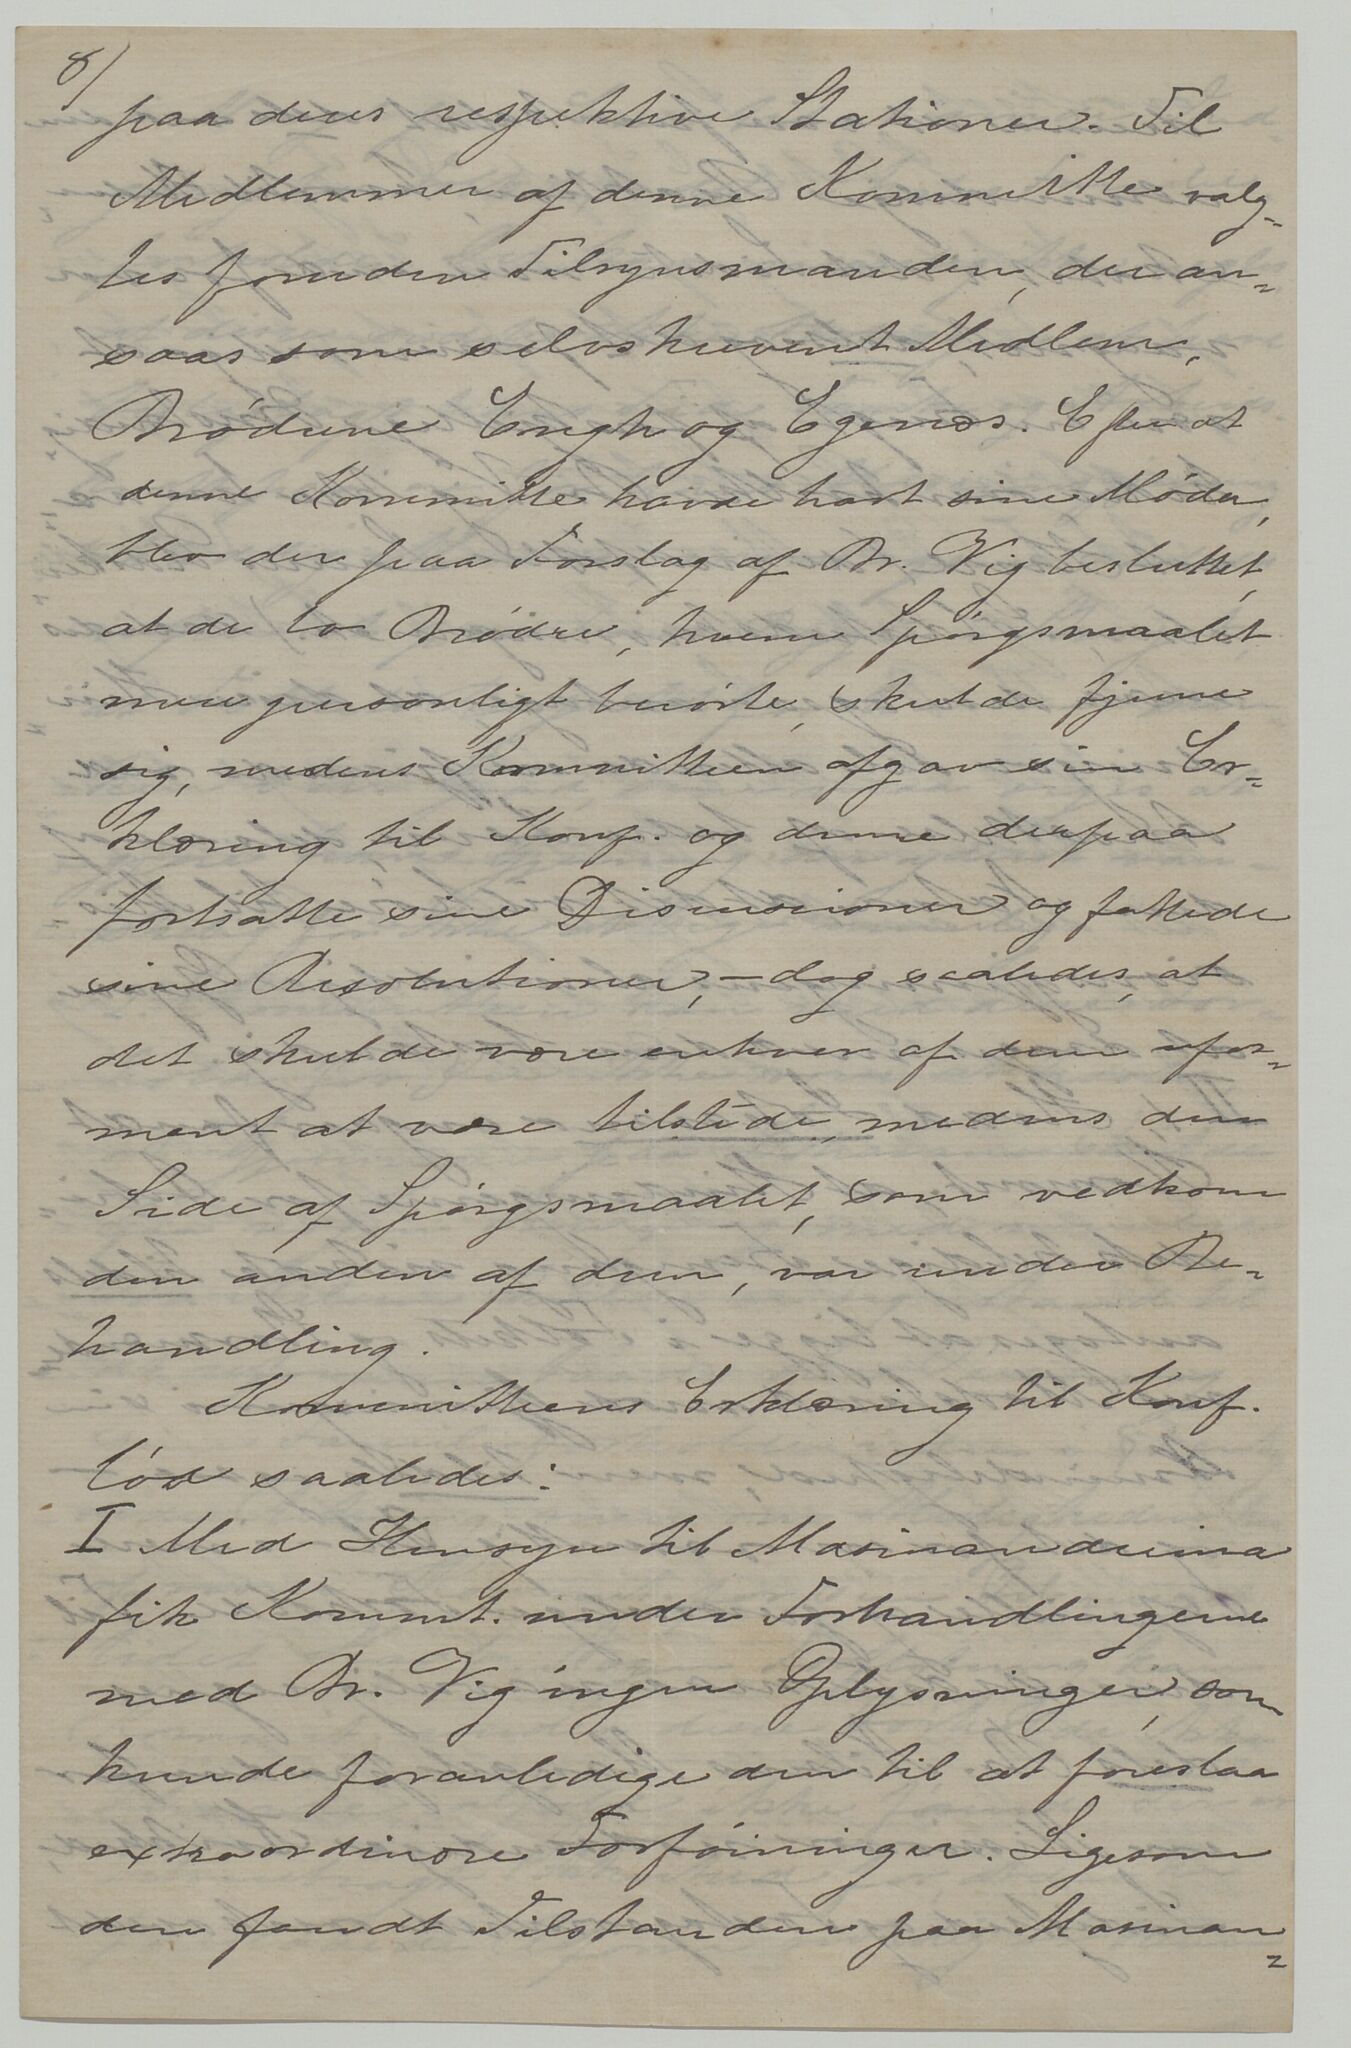 8/
paa deres respektive Stationer. Til
Medlemmer af denne Kommitte valg-
tes foruden Tilsynsmanden, der an-
saas som selvskrevent Medlem,
Brødrene Engh og Egenæs. Efter at
denne Kommitte havde havt sine Møder,
blev der paa Forslag af Br. Vig besluttet,
at de to Brødre, hvem Spørgsmaalet
mere personligt berørte, skulde fjerne
sig, medens Kommitteen afgav sin Er-
klæring til Konf. og denne derpaa
fortsatte sine Discussioner og fattede
sine Resolutioner, - dog saaledes, at
det skulde være enhver af dem ufor-
ment at være tilstede, medens den
Side af Spørgsmaalet, som vedkom
den anden af dem, var under Be-
handling.
Kommitteens Erklæring til Konf.
lød saaledes:
I Med Hensyn til Masinandreina
fik Kommt. under Forhandlingerne
med Br. Vig ingen Oplysninger, som
kunde foranledige den til at foreslaa
extraordinære Forføininger. Ligesom
den fandt Tilstanden paa Masinan-